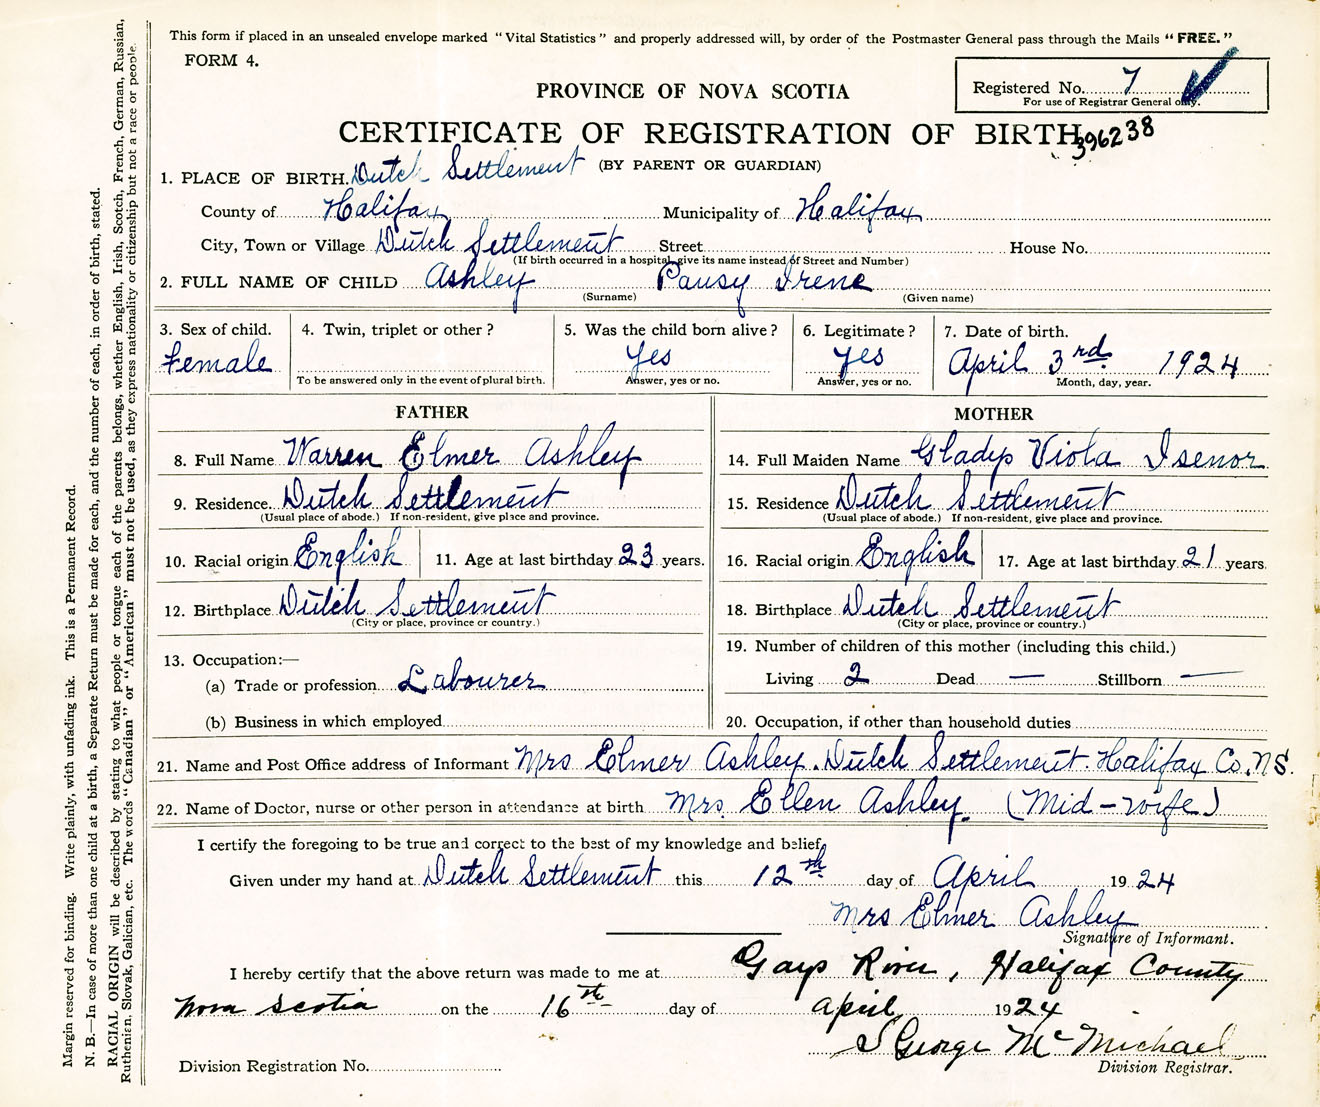 This form if placed in an unsealed envelope marked "Vital Statistics" and properly addressed will, by order of the Postmaster General pass through the Mails "FREE."
FORM 4.
Registered No. 7
For use of Registrar General only.
PROVINCE OF NOVA SCOTIA
CERTIFICATE OF REGISTRATION OF BIRTH
396238
(BY PARENT OR GUARDIAN)
1. PLACE OF BIRTH. Dutch Settlement
County of Halifax Municipality of Halifax
City, Town or Village Dutch Settlement Street House No.
(If birth occurred in a hospital, give its name instead of Street and Number)
2. FULL NAME OF CHILD Ashley Pansy Irene
(Surname) (Given name)
3. Sex of child. 4. Twin, triplet or other? 5. Was the child born alive? 6. Legitimate? 7. Date of birth.
Female Yes Yes April 3rd 1924
To be answered only in the event of plural birth. Answer, yes or no. Answer, yes or no. Month, day, year.
FATHER
8. Full Name Warren Elmer Ashley
9. Residence. Dutch Settlement
(Usual place of abode.) If non-resident, give place and province.
10. Racial origin English 11. Age at last birthday 23 years.
12. Birthplace Dutch Settlement
(City or place, province or country.)
13. Occupation:—
(a) Trade or profession Labourer
(b) Business in which employed
MOTHER
14. Full Maiden Name Gladys Viola Isenor
15. Residence Dutch Settlement
(Usual place of abode.) If non-resident, give place and province.
16. Racial origin English 17. Age at last birthday 21 years.
18. Birthplace Dutch Settlement
(City or place, province or country.)
19. Number of children of this mother (including this child.)
Living 2 Dead — Stillborn —
20. Occupation, if other than household duties
21. Name and Post Office address of Informant Mrs Elmer Ashley. Dutch Settlement. Halifax Co. N.S.
22. Name of Doctor, nurse or other person in attendance at birth Mrs. Ellen Ashley. (Mid-wife)
I certify the foregoing to be true and correct to the best of my knowledge and belief,
Given under my hand at Dutch Settlement this 12th day of April 1924
Mrs Elmer Ashley
Signature of Informant.
I hereby certify that the above return was made to me at Gays River, Halifax County
Nova Scotia on the 16th day of April 1924
George McMichael
Division Registration No. Division Registrar.
Margin reserved for binding. Write plainly, with unfading ink. This is a Permanent Record.
N. B.—In case of more than one child at a birth, a Separate Return must be made for each, and the number of each, in order of birth, stated.
RACIAL ORIGIN will be described by stating to what people or tongue each of the parents belongs, whether English, Irish, Scotch, French, German, Russian,
Ruthenian, Slovak, Galician, etc. The words "Canadian" or "American" must not be used, as they express nationality or citizenship but not a race or people.